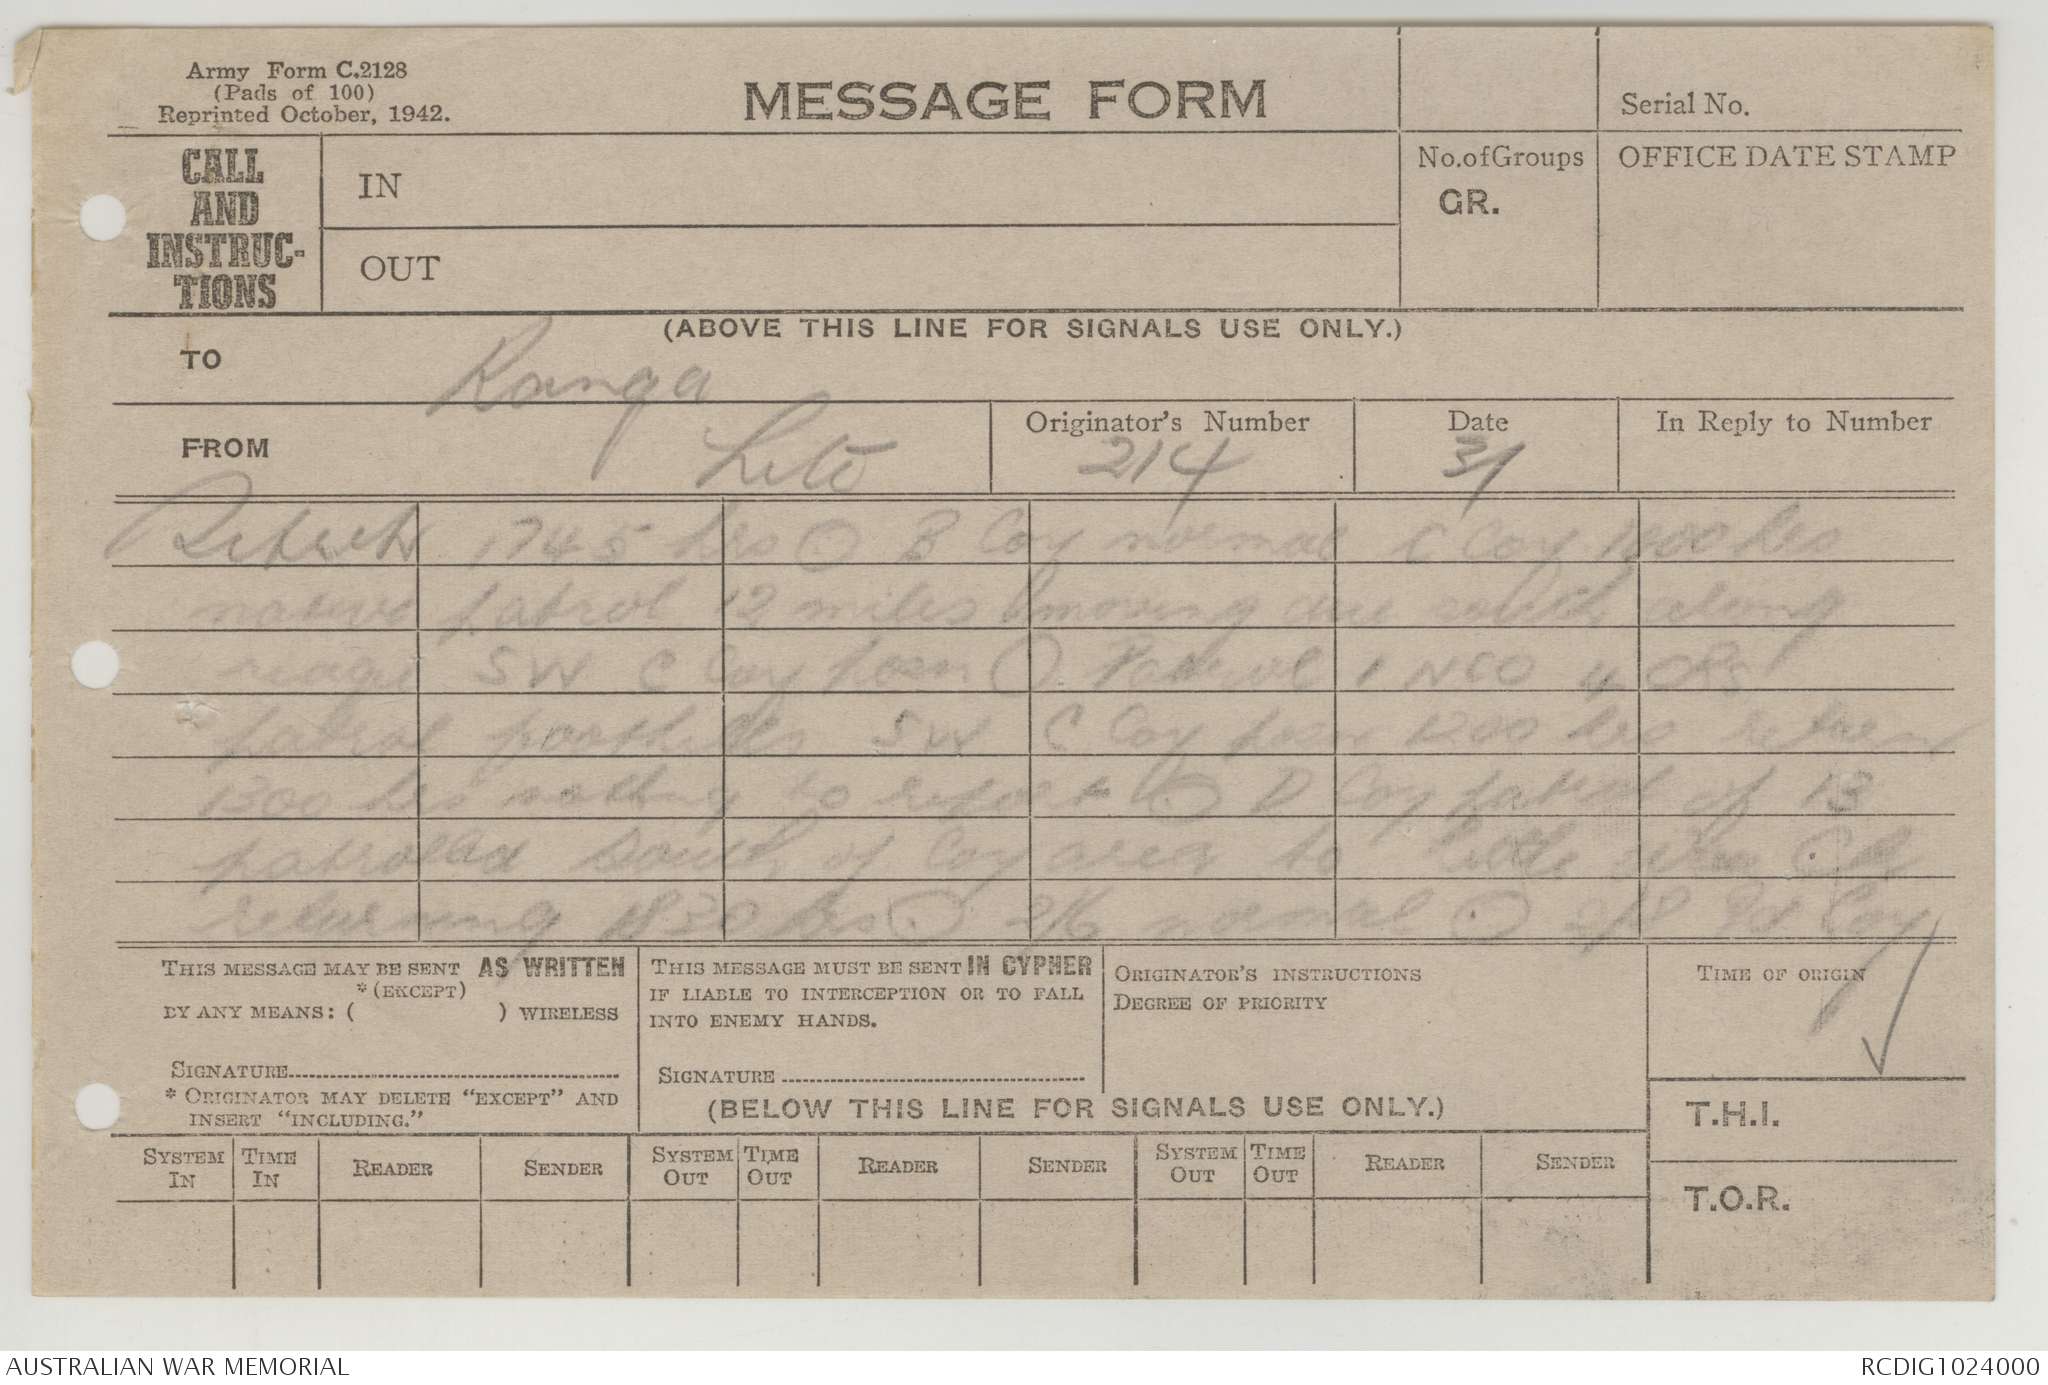 Army Form C.2128
(Pads of 100)
Reprinted October, 1942.
MESSAGE FORM
Serial No.
CALL
AND
INSTRUC-
TIONS
IN
OUT
No. of Groups
GR.
OFFICE DATE STAMP
(ABOVE THIS LINE FOR SIGNALS USE ONLY.)
TO
Ranga
FROM
Lito
Originator's Number
214
Date
31
In Reply to Number
1745 hrs O B Coy normal C Coy hrs
native patrol 12 miles moving due south along
ridge SW C Coy posn O Patrol 1 NCO 4 ORs
patrol foothills SW C Coy posn 1200 hrs return
1300 hrs nothing to report O D Coy patrol of 13
patrolled South of Coy area to
returning 1830 hrs O 2/6 normal O Coy
THIS MESSAGE MAY BE SENT AS WRITTEN
* (EXCEPT)
BY ANY MEANS: ( ) WIRELESS
SIGNATURE
* ORIGINATOR MAY DELETE "EXCEPT" AND
INSERT "INCLUDING."
THIS MESSAGE MUST BE SENT IN CYPHER
IF LIABLE TO INTERCEPTION OR TO FALL
INTO ENEMY HANDS.
SIGNATURE
ORIGINATOR'S INSTRUCTIONS
DEGREE OF PRIORITY
TIME OF ORIGIN
(BELOW THIS LINE FOR SIGNALS USE ONLY.)
T.H.I.
T.O.R.
SYSTEM IN
TIME IN
READER
SENDER
SYSTEM OUT
TIME OUT
READER
SENDER
SYSTEM OUT
TIME OUT
READER
SENDER
AUSTRALIAN WAR MEMORIAL
RCDIG1024000